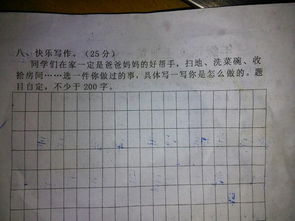 八、快乐写作。(25分)
同学们在家一定是爸爸妈妈的好帮手,扫地、洗菜碗、收
拾房间……选一件你做过的事,具体写一写你是怎么做的。题
目自定,不少于200字。